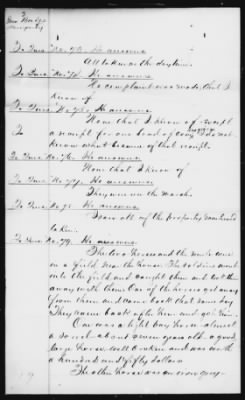 To Ques. No. 73. He answers
All taken in the daytime.
To Ques. No. 74. He answers
No complaint was made, that I
know of
To Ques. No. 75. He answers
None that I know of - except
a receipt for one load of corn. I do not
know what became of that receipt.
To Ques. No. 76. He answers.
None that I know of
To Ques. No. 77. He answers.
They were on the march.
To Ques. No. 78. He answers.
I saw all of the property mentioned
taken.
To Ques. No. 79. He answers.
The two horses and the mule were
in a field near the house. The soldiers went
into the field and caught them and led them
away with them. One of the horses got away
from them and came back that same day.
They came back after him and got him.
One was a light bay horse - almost
a sorrel - about seven years old - a good
large horse, well broken and was worth
a hundred and fifty dollars.
The other horse was an iron grey -